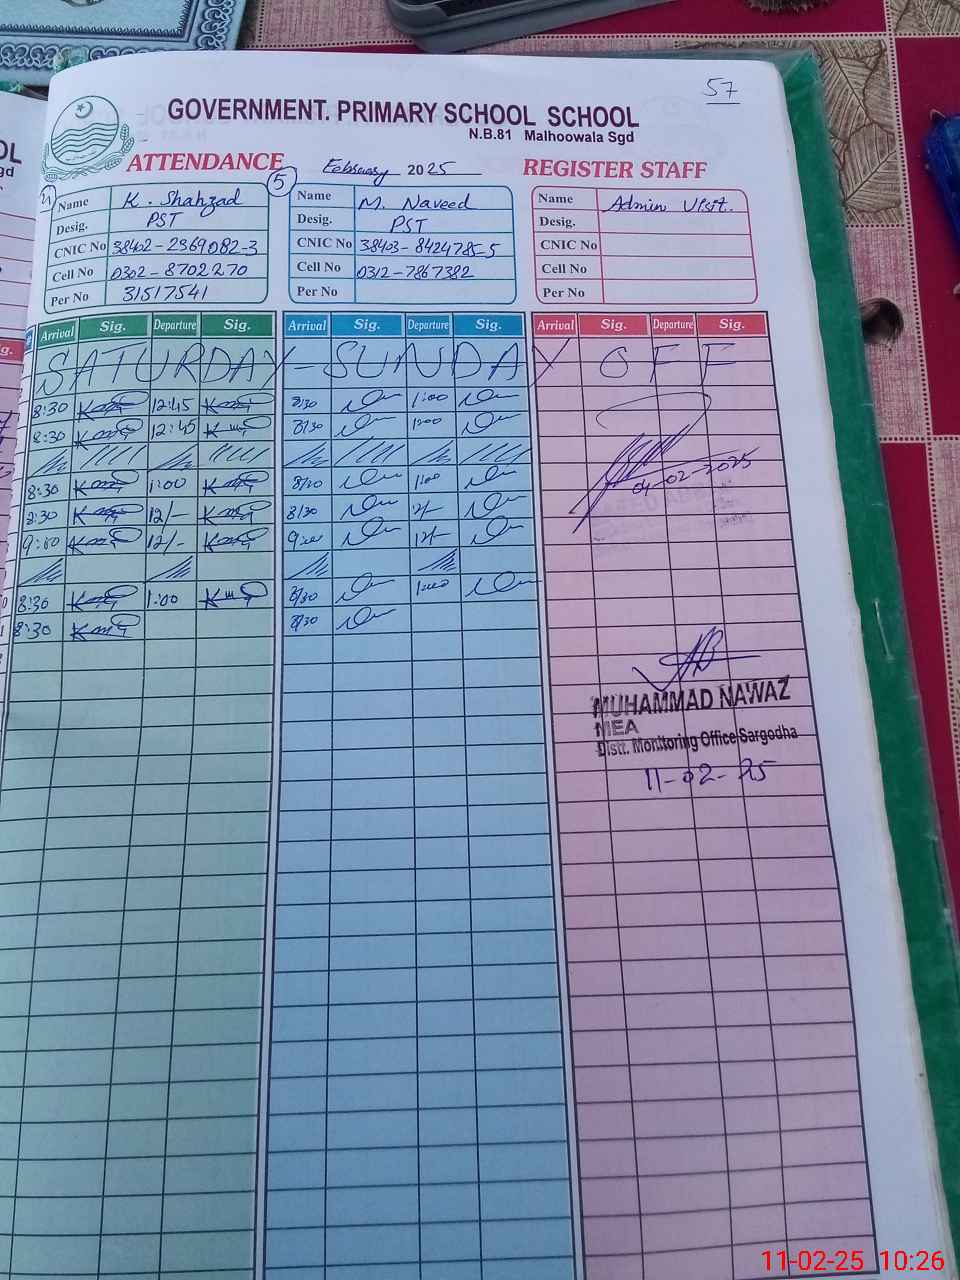 57
GOVERNMENT. PRIMARY SCHOOL SCHOOL
N.B.81 Malhoowala Sgd
ATTENDANCE February 2025 REGISTER STAFF
4 5
Name K. Shahzad Name M. Naveed Name Admin Visit.
Desig. PST Desig. PST Desig.
CNIC No 38402-2369082-3 CNIC No 38403-8424785-5 CNIC No
Cell No 0302-8702270 Cell No 0312-7867382 Cell No
Per No 31517541 Per No Per No
Arrival Sig. Departure Sig. Arrival Sig. Departure Sig. Arrival Sig. Departure Sig.
SATURDAY-SUNDAY OFF
8:30 12:45 8/30 1:00
8:30 12:45 8/30 1:00
8:30 1:00 8/30 1:00
04-02-2025
8:30 12/- 8/30 12/-
9:00 12/- 9:00 12/-
8:30 1:00 8/30 1:00
8:30 8/30
MUHAMMAD NAWAZ
MEA
Distt. Monitoring Office Sargodha
11-02-25
11-02-25 10:26